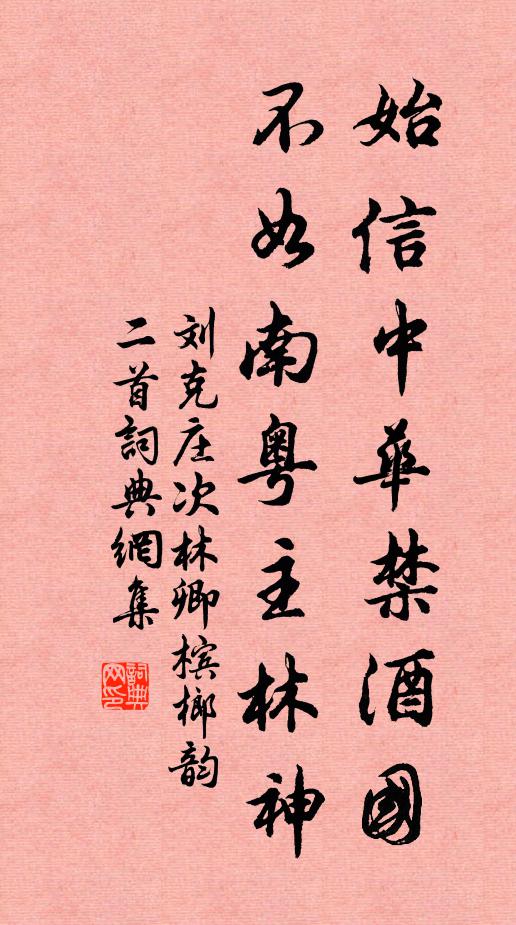 始信中華禁酒國
不如南粵主林神
刘克庄次林卿檳榔韵
二首詞典網集
詞典网印